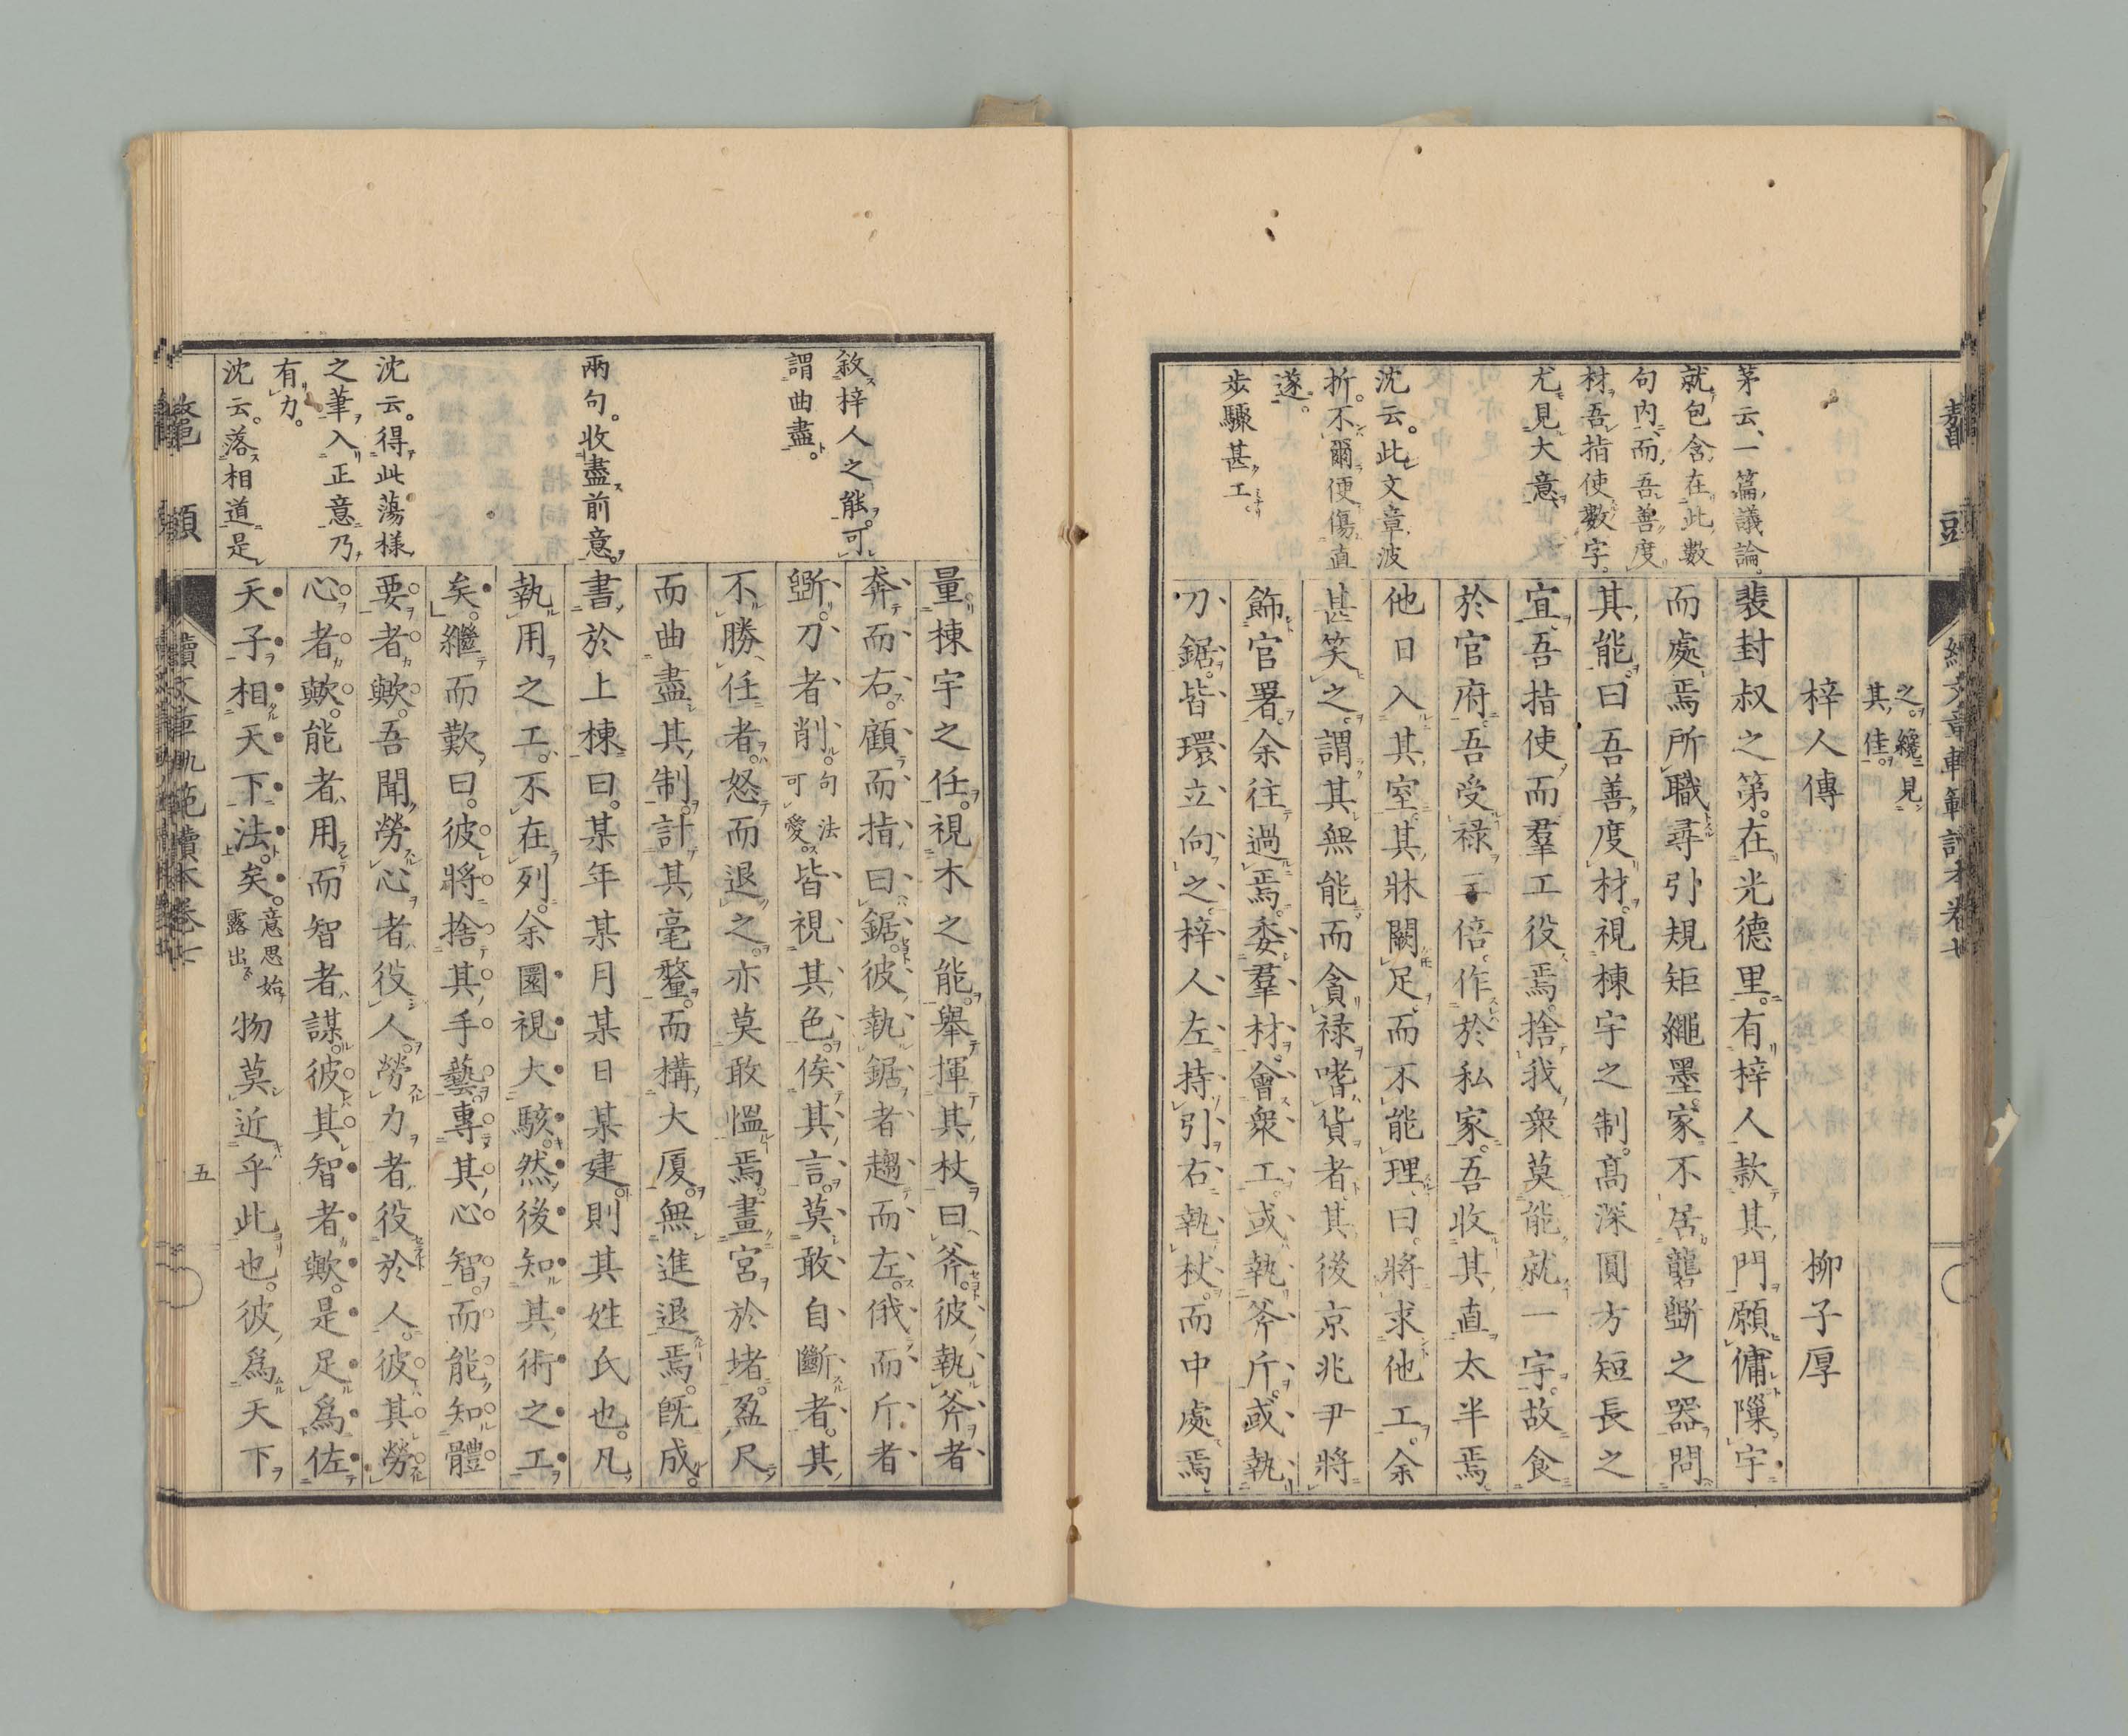 鼇頭
續文章軌範讀本卷七
茅云、一篇議論。
就包含在此數
句内、而吾善度
材、吾指使數字。
尤見大意
沈云。此文章波
折。不爾便傷直
遂。
步驟甚工
之。纔見
其佳。
梓人傳 柳子厚
裴封叔之第。在光德里。有梓人款其門。願傭隟宇
而處焉。所職尋引規矩繩墨。家不居礱斲之器。問
其能。曰吾善度材。視棟宇之制。高深圓方短長之
宜。吾指使而羣工役焉。捨我衆莫能就一宇。故食
於官府。吾受禄三倍。作於私家。吾收其直太半焉
他日入其室。其牀闕足。而不能理。曰。將求他工。余
甚笑之。謂其無能而貪禄嗜貨者。其後京兆尹將
飾官署。余往過焉。委羣材。會衆工。或執斧斤。或執
刀鋸。皆環立向之。梓人左持引右執杖。而中處焉
敘梓人之能。可
謂曲盡。
兩句。收盡前意。
沈云。得此蕩様
之筆、入正意乃
有力。
沈云。落相道是
量棟宇之任。視木之能。舉揮其杖曰斧。彼執斧者
奔而右。顧而指曰。鋸。彼執鋸者趨而左。俄而斤者
斲。刀者削。句法可愛。皆視其色。俟其言。莫敢自斷者。其
不勝任者。怒而退之。亦莫敢慍焉。畫宮於堵。盈尺
而曲盡其制。計其毫釐。而構大厦。無進退焉。既成。
書於上棟曰。某年某月某日某建。則其姓氏也。凡
執用之工。不在列。余圜視大駭。然後知其術之工
矣。繼而歎曰。彼將捨其手藝。專其心智。而能知體
要者歟。吾聞勞心者役人。勞力者役於人。彼其勞
心者歟。能者用而智者謀。彼其智者歟。是足爲佐
天子相天下法矣。意思始露出 物莫近乎此也。彼爲天下
鼇頭
續文章軌範讀本卷七
五